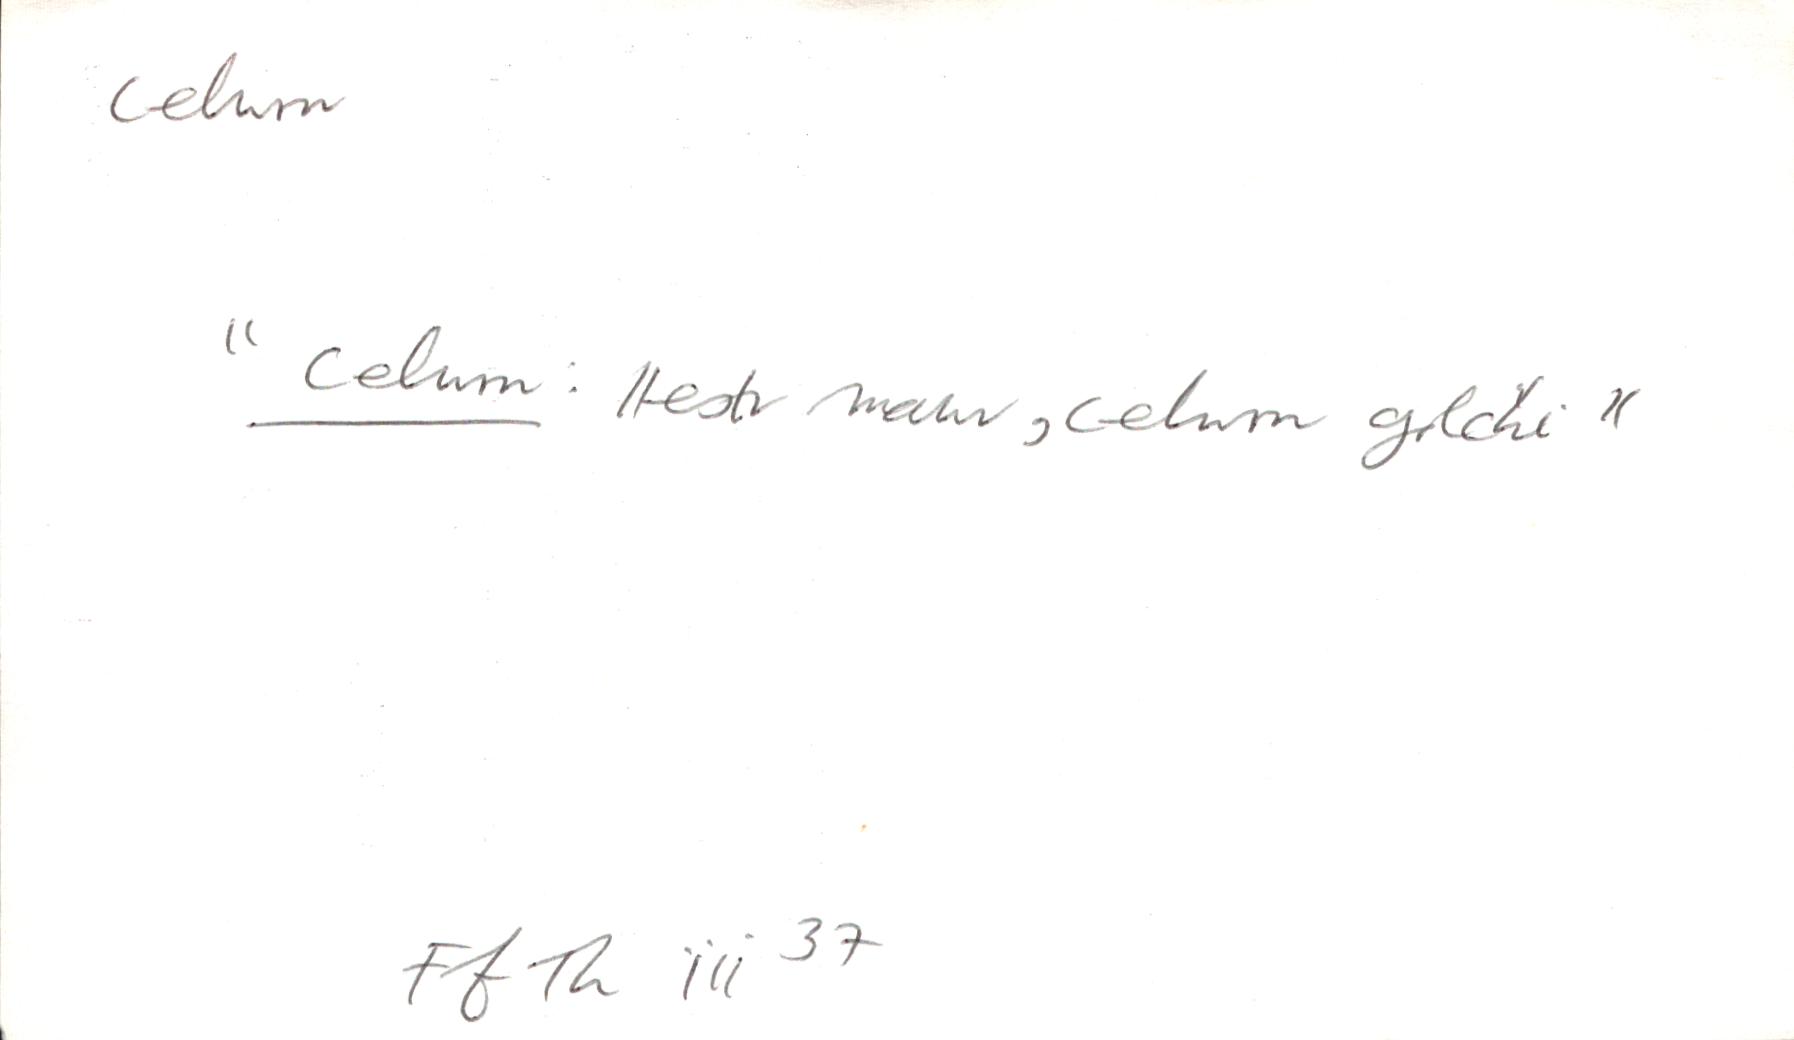 Celwrn
"Celwrn: Llestr mawr, celwrn golchi"
Ff Th iii 37